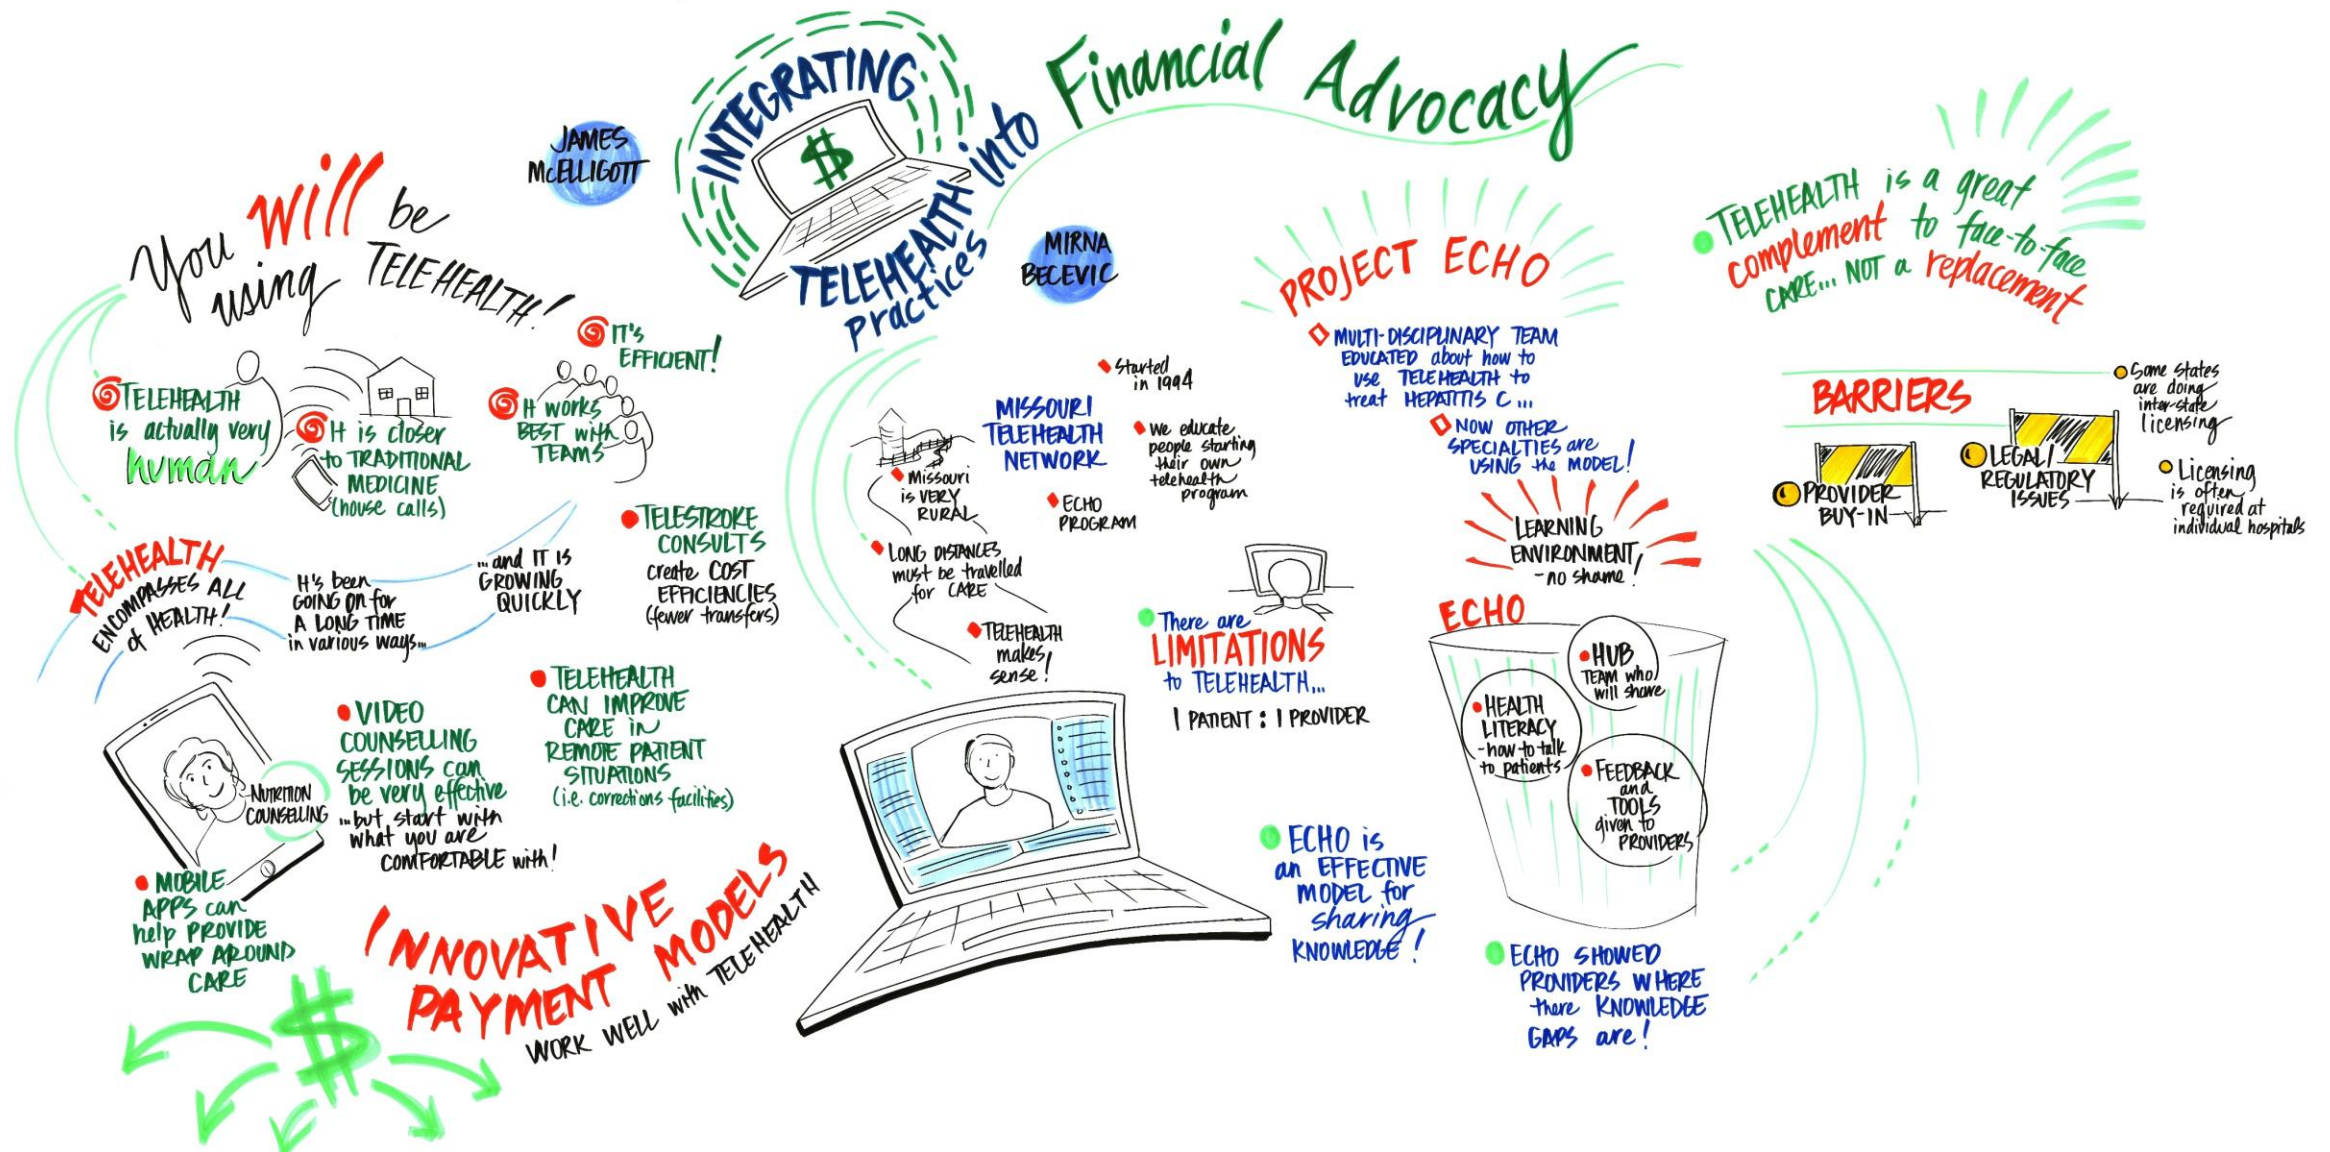 INTEGRATING
TELEHEALTH
practices
into
Financial Advocacy
$
JAMES
McELLIGOTT
You will be
using TELEHEALTH!
TELEHEALTH
is actually very
human
It is closer
to TRADITIONAL
MEDICINE
(house calls)
IT'S
EFFICIENT!
It works
BEST with
TEAMS
TELEHEALTH
ENCOMPASSES ALL
of HEALTH!
It's been
GOING ON for
A LONG TIME
in various ways...
...and IT IS
GROWING
QUICKLY
TELESTROKE
CONSULTS
create COST
EFFICIENCIES
(fewer transfers)
NUTRITION
COUNSELLING
MOBILE
APPS can
help PROVIDE
WRAP AROUND
CARE
VIDEO
COUNSELLING
SESSIONS can
be very effective
...but start with
what you are
COMFORTABLE with!
TELEHEALTH
CAN IMPROVE
CARE in
REMOTE PATIENT
SITUATIONS
(i.e. corrections facilities)
$
INNOVATIVE
PAYMENT MODELS
WORK WELL with TELEHEALTH
MIRNA
BECEVIC
MISSOURI
TELEHEALTH
NETWORK
Started
in 1994
We educate
people starting
their own
telehealth
program
ECHO
PROGRAM
Missouri
is VERY
RURAL
LONG DISTANCES
must be travelled
for CARE
TELEHEALTH
makes
sense!
There are
LIMITATIONS
to TELEHEALTH...
1 PATIENT : 1 PROVIDER
PROJECT ECHO
MULTI-DISCIPLINARY TEAM
EDUCATED about how to
use TELEHEALTH to
treat HEPATITIS C...
NOW OTHER
SPECIALTIES are
USING the MODEL!
LEARNING
ENVIRONMENT,
- no shame!
ECHO
HUB
TEAM who
will share
HEALTH
LITERACY
- how to talk
to patients
FEEDBACK
and
TOOLS
given to
PROVIDERS
ECHO is
an EFFECTIVE
MODEL for
sharing
KNOWLEDGE!
ECHO SHOWED
PROVIDERS WHERE
there KNOWLEDGE
GAPS are!
TELEHEALTH is a great
complement to face-to-face
CARE... NOT a replacement
BARRIERS
PROVIDER
BUY-IN
LEGAL/
REGULATORY
ISSUES
Some states
are doing
inter-state
licensing
Licensing
is often
required at
individual hospitals